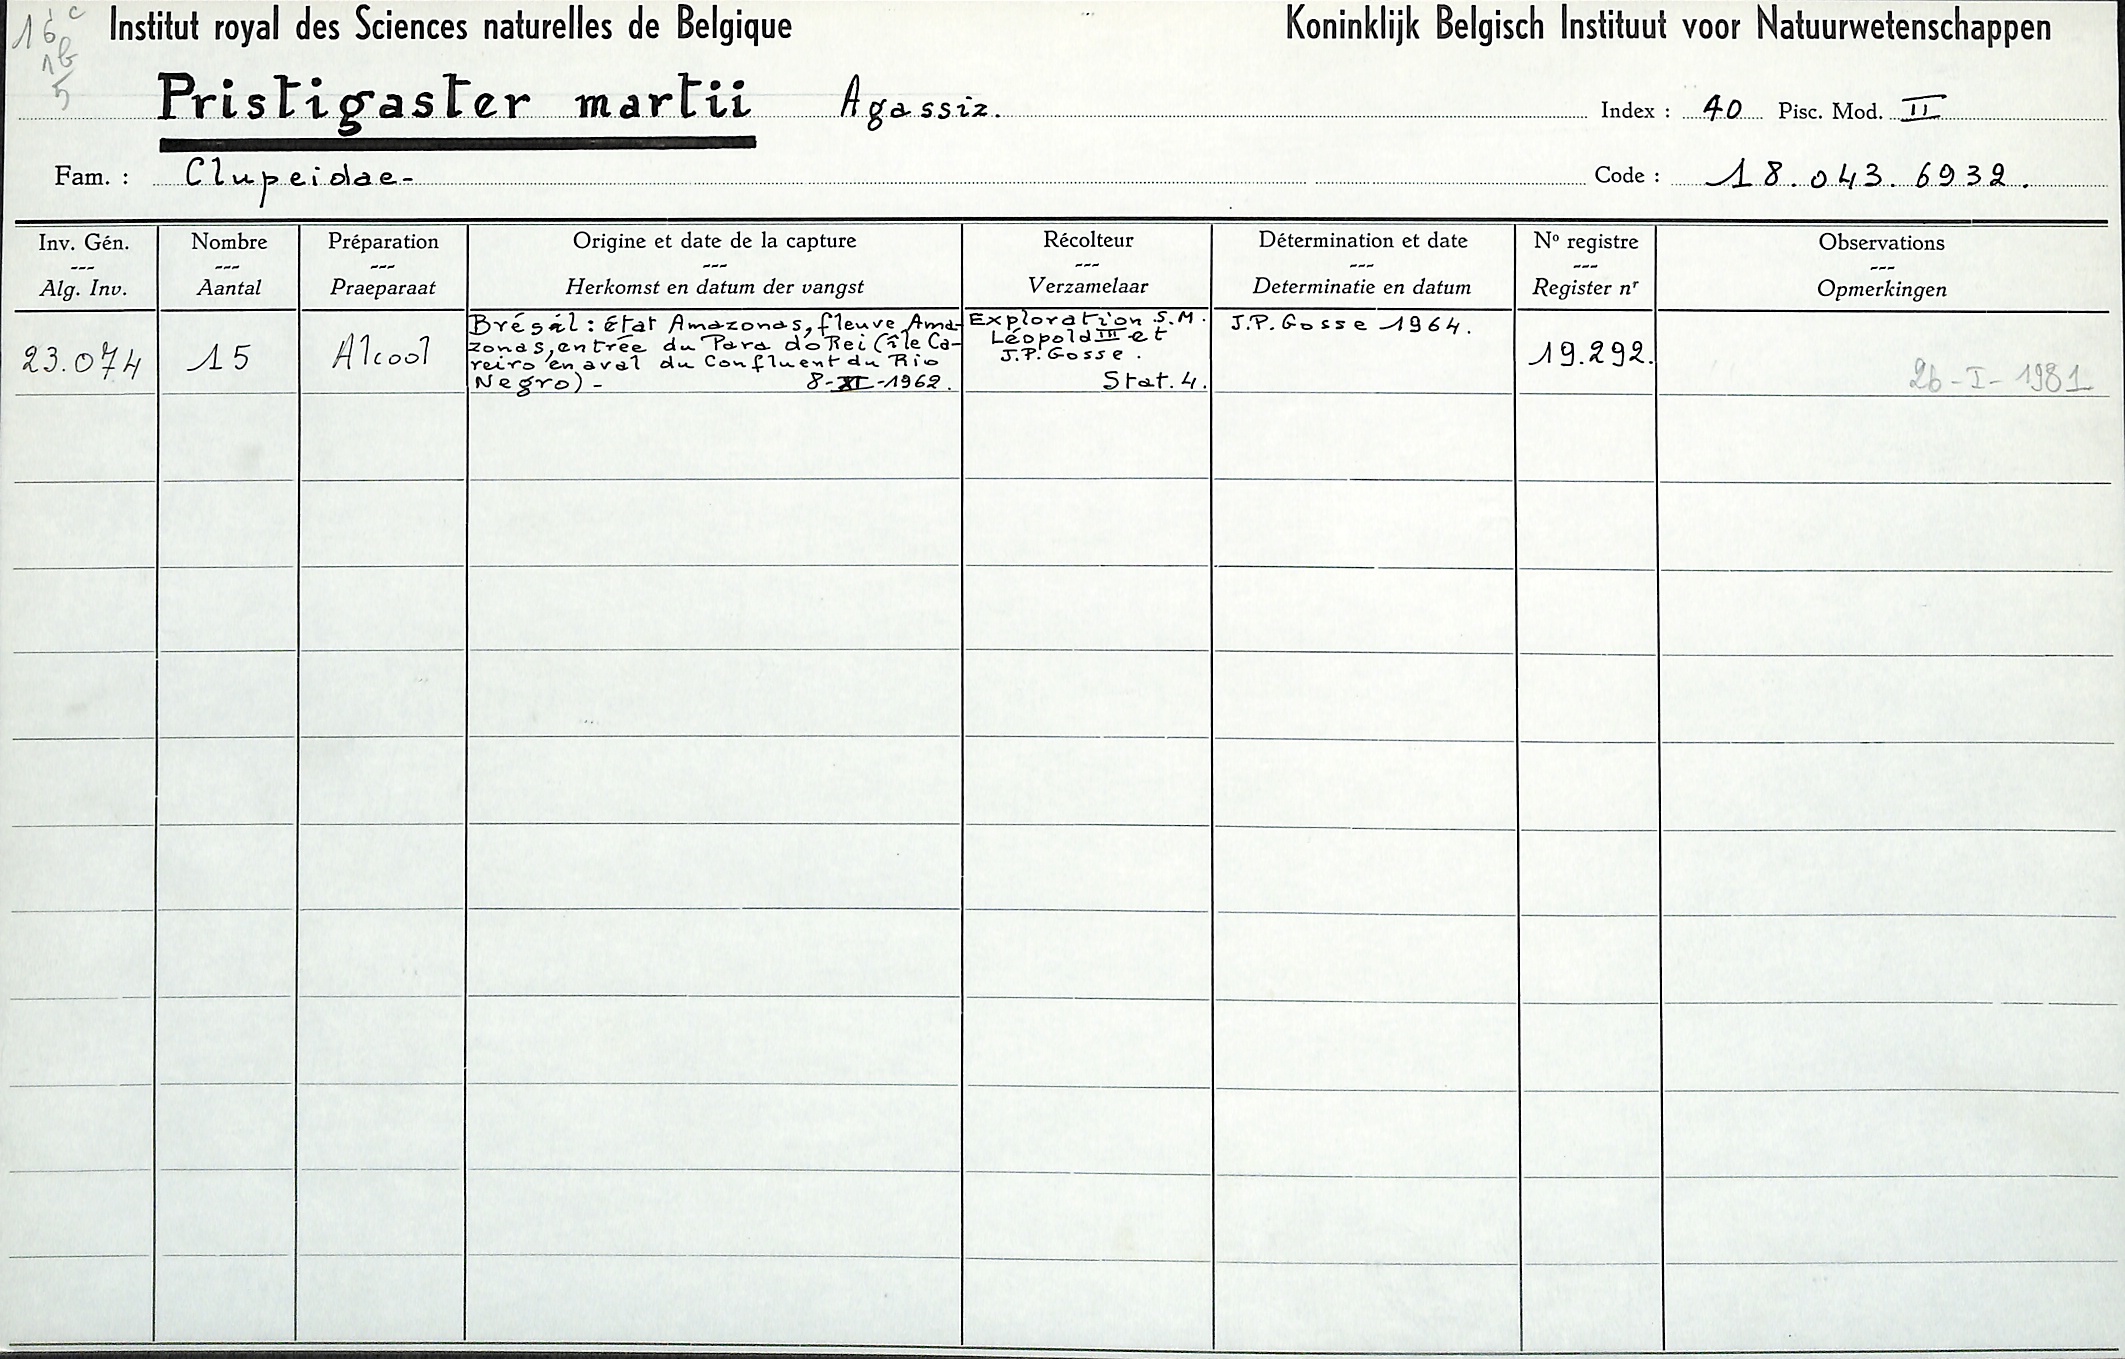 Institut royal des Sciences naturelles de Belgique
Koninklijk Belgisch Instituut voor Natuurwetenschappen
16 c
1b
5
Pristigaster martii Agassiz.
Index : 40 Pisc. Mod. II
Fam. : Clupeidae-
Code : 18.043.6932.
Inv. Gén.
---
Alg. Inv.
Nombre
---
Aantal
Préparation
---
Praeparaat
Origine et date de la capture
---
Herkomst en datum der vangst
Récolteur
---
Verzamelaar
Détermination et date
---
Determinatie en datum
No registre
---
Register nr
Observations
---
Opmerkingen
23.074
15
Alcool
Brésil : état Amazonas, fleuve Ama-
zonas, entrée du Para do Rei (île Ca-
reiro en aval du Confluent du Rio
Negro) - 8-XI-1962.
Exploration S.M.
Léopold III et
J.P. Gosse.
Stat. 4.
J.P. Gosse 1964.
19.292.
26-I-1981